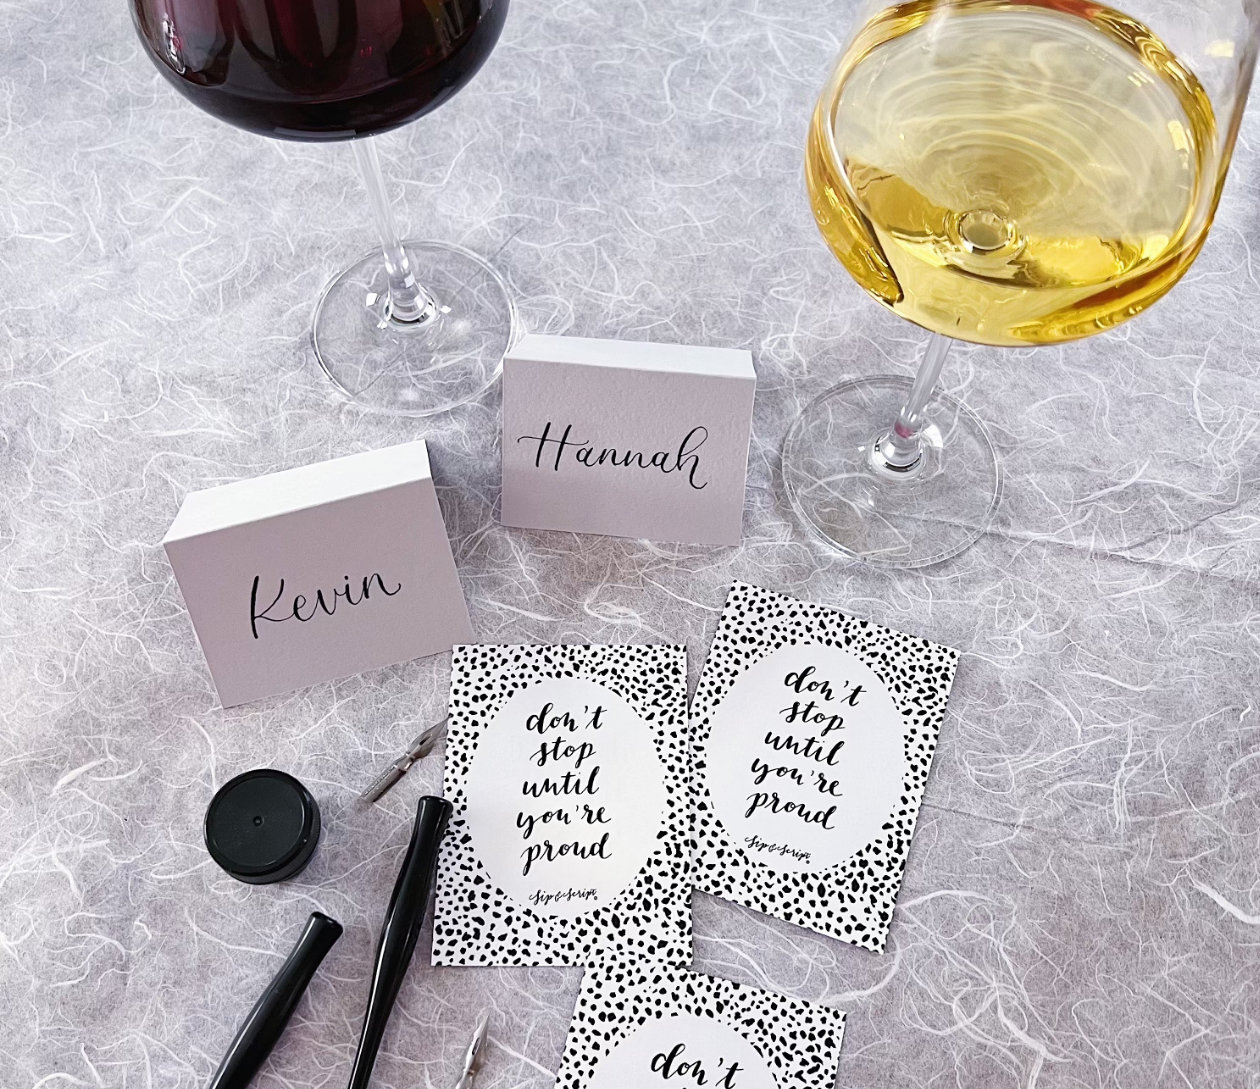 Hannah
Kevin
don't
stop
until
you're
proud
Sip & Script
don't
stop
until
you're
proud
Sip & Script
don't